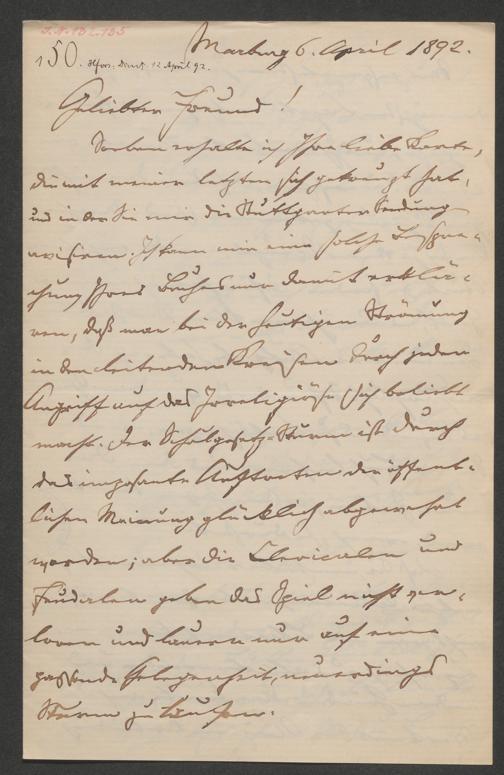 I.N. 132.135
150. Marburg 6. April 1892.
Geliebter Freund!
Soeben erhalte ich Ihre liebe Karte,
die mit meiner letzten sich gekreuzt hat,
und in der Sie mir die Stuttgarter Sendung
avisiren. Ich kann mir eine solche Bespre-
chung Ihres Buches nur damit erklä-
ren, daß man bei der heutigen Strömung
in den leitenden Kreisen durch jeden
Angriff auf das Irreligiöse sich beliebt
macht. Der Schulgesetz-Sturm ist durch
das imposante Auftreten der öffent-
lichen Meinung glücklich abgewehrt
worden; aber die Clericalen und
Feudalen geben das Spiel nicht ver-
loren und lauern nur auf eine
passende Gelegenheit, neuerdings
Sturm zu laufen.